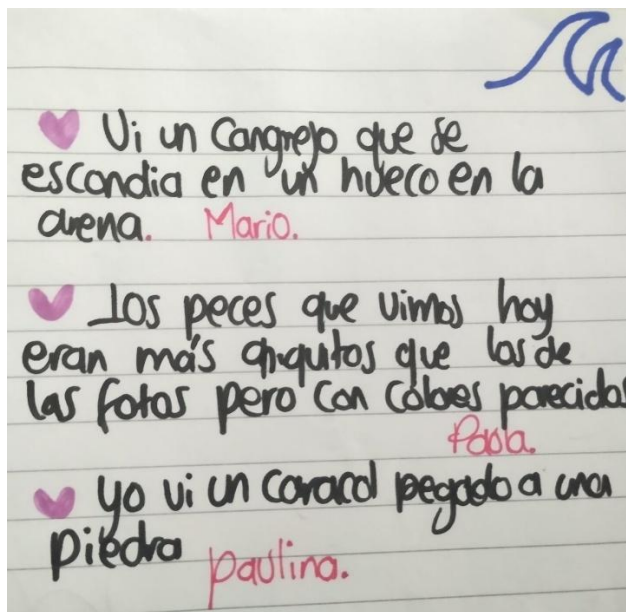 Vi un Cangrejo que se
escondia en un hueco en la
arena. Mario.
Los peces que vimos hoy
eran más chiquitos que los de
las fotos pero con colores parecidos
Paola.
yo vi un caracol pegado a una
piedra paulina.